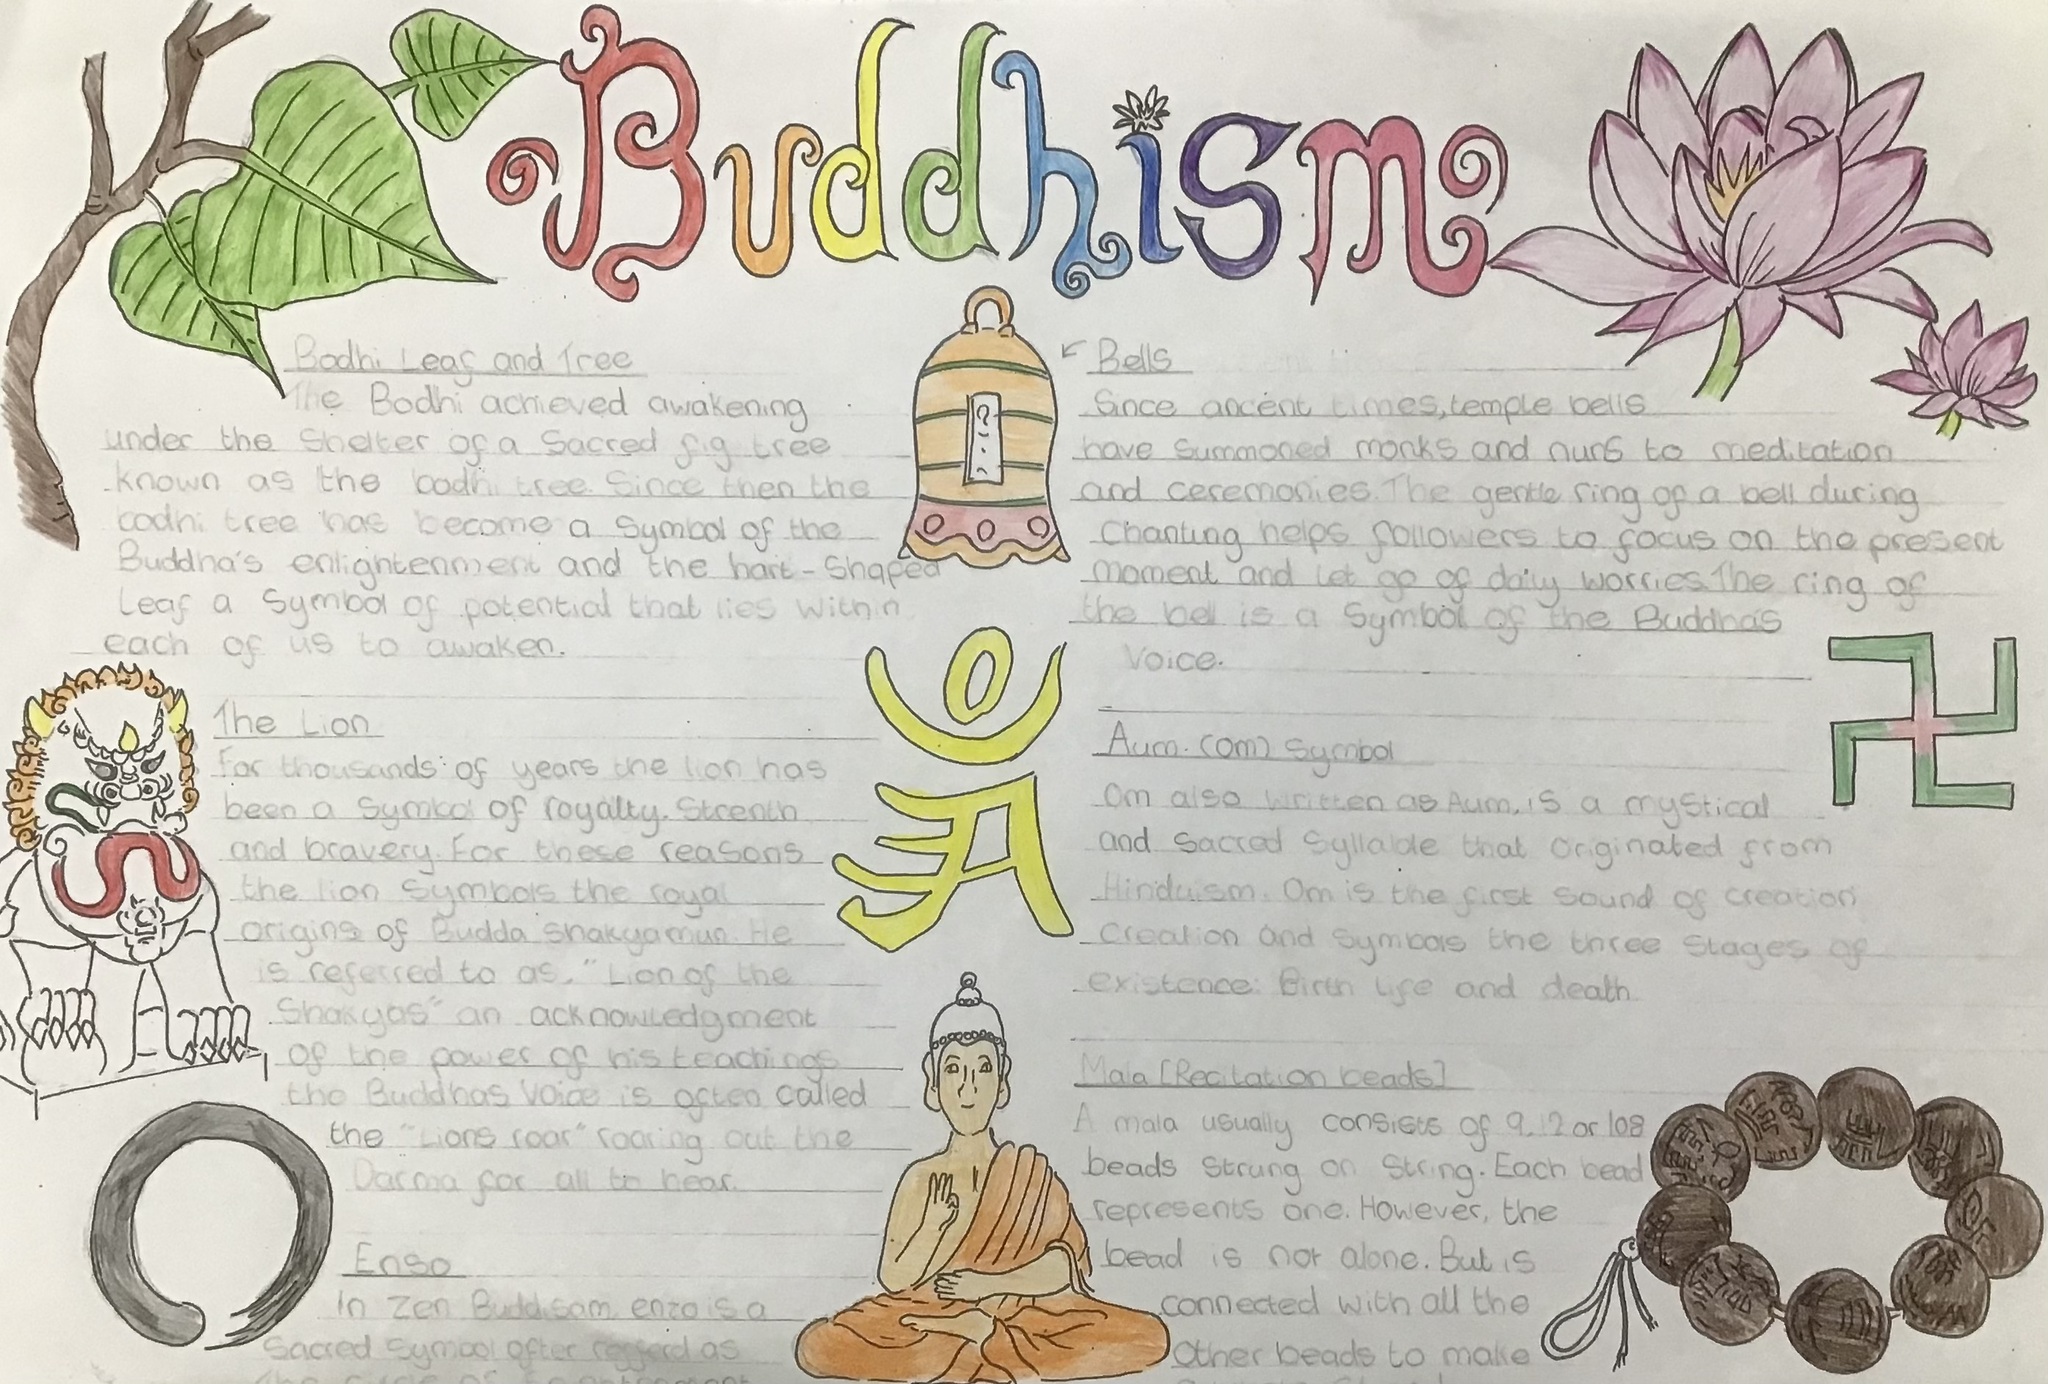 Buddhism
Bodhi Leaf and Tree
The Bodhi achieved awakening
under the Shelter of a Sacred fig tree
known as the bodhi tree. Since then the
bodhi tree has become a Symbol of the
Buddha's enlightenment and the hart-Shaped
Leaf a Symbol of potential that lies within
each of us to awaken.
The Lion
For thousands of years the lion has
been a Symbol of royalty. Strenth
and bravery. For these reasons
the lion Symbols the royal
origins of Budda Shakyamun. He
is referred to as. "Lion of the
Shakyas" an acknowledgment
of the power of his teachings
the Buddhas Voice is often called
the "Lions roar" roaring out the
Darma for all to hear.
Enso
In Zen Buddisam enzo is a
Sacred Symbol often as
Bells
Since ancent times, temple bells
have Summoned monks and nuns to meditation
and ceremonies. The gentle ring of a bell during
Chanting helps followers to focus on the present
moment and let go of daily worries. The ring of
the bell is a Symbol of the Buddha's
Voice.
Aum. (om) Symbol
Om also written as Aum. is a mystical
and Sacred Syllable that originated from
Hinduism. Om is the first Sound of creation
Creation and Symbols the three Stages of
existence: Birth life and death
Mala [Recitation beads]
A mala usually consists of 9,12 or 108
beads Strung on String. Each bead
represents one. However, the
bead is not alone. But is
connected with all the
Other beads to make